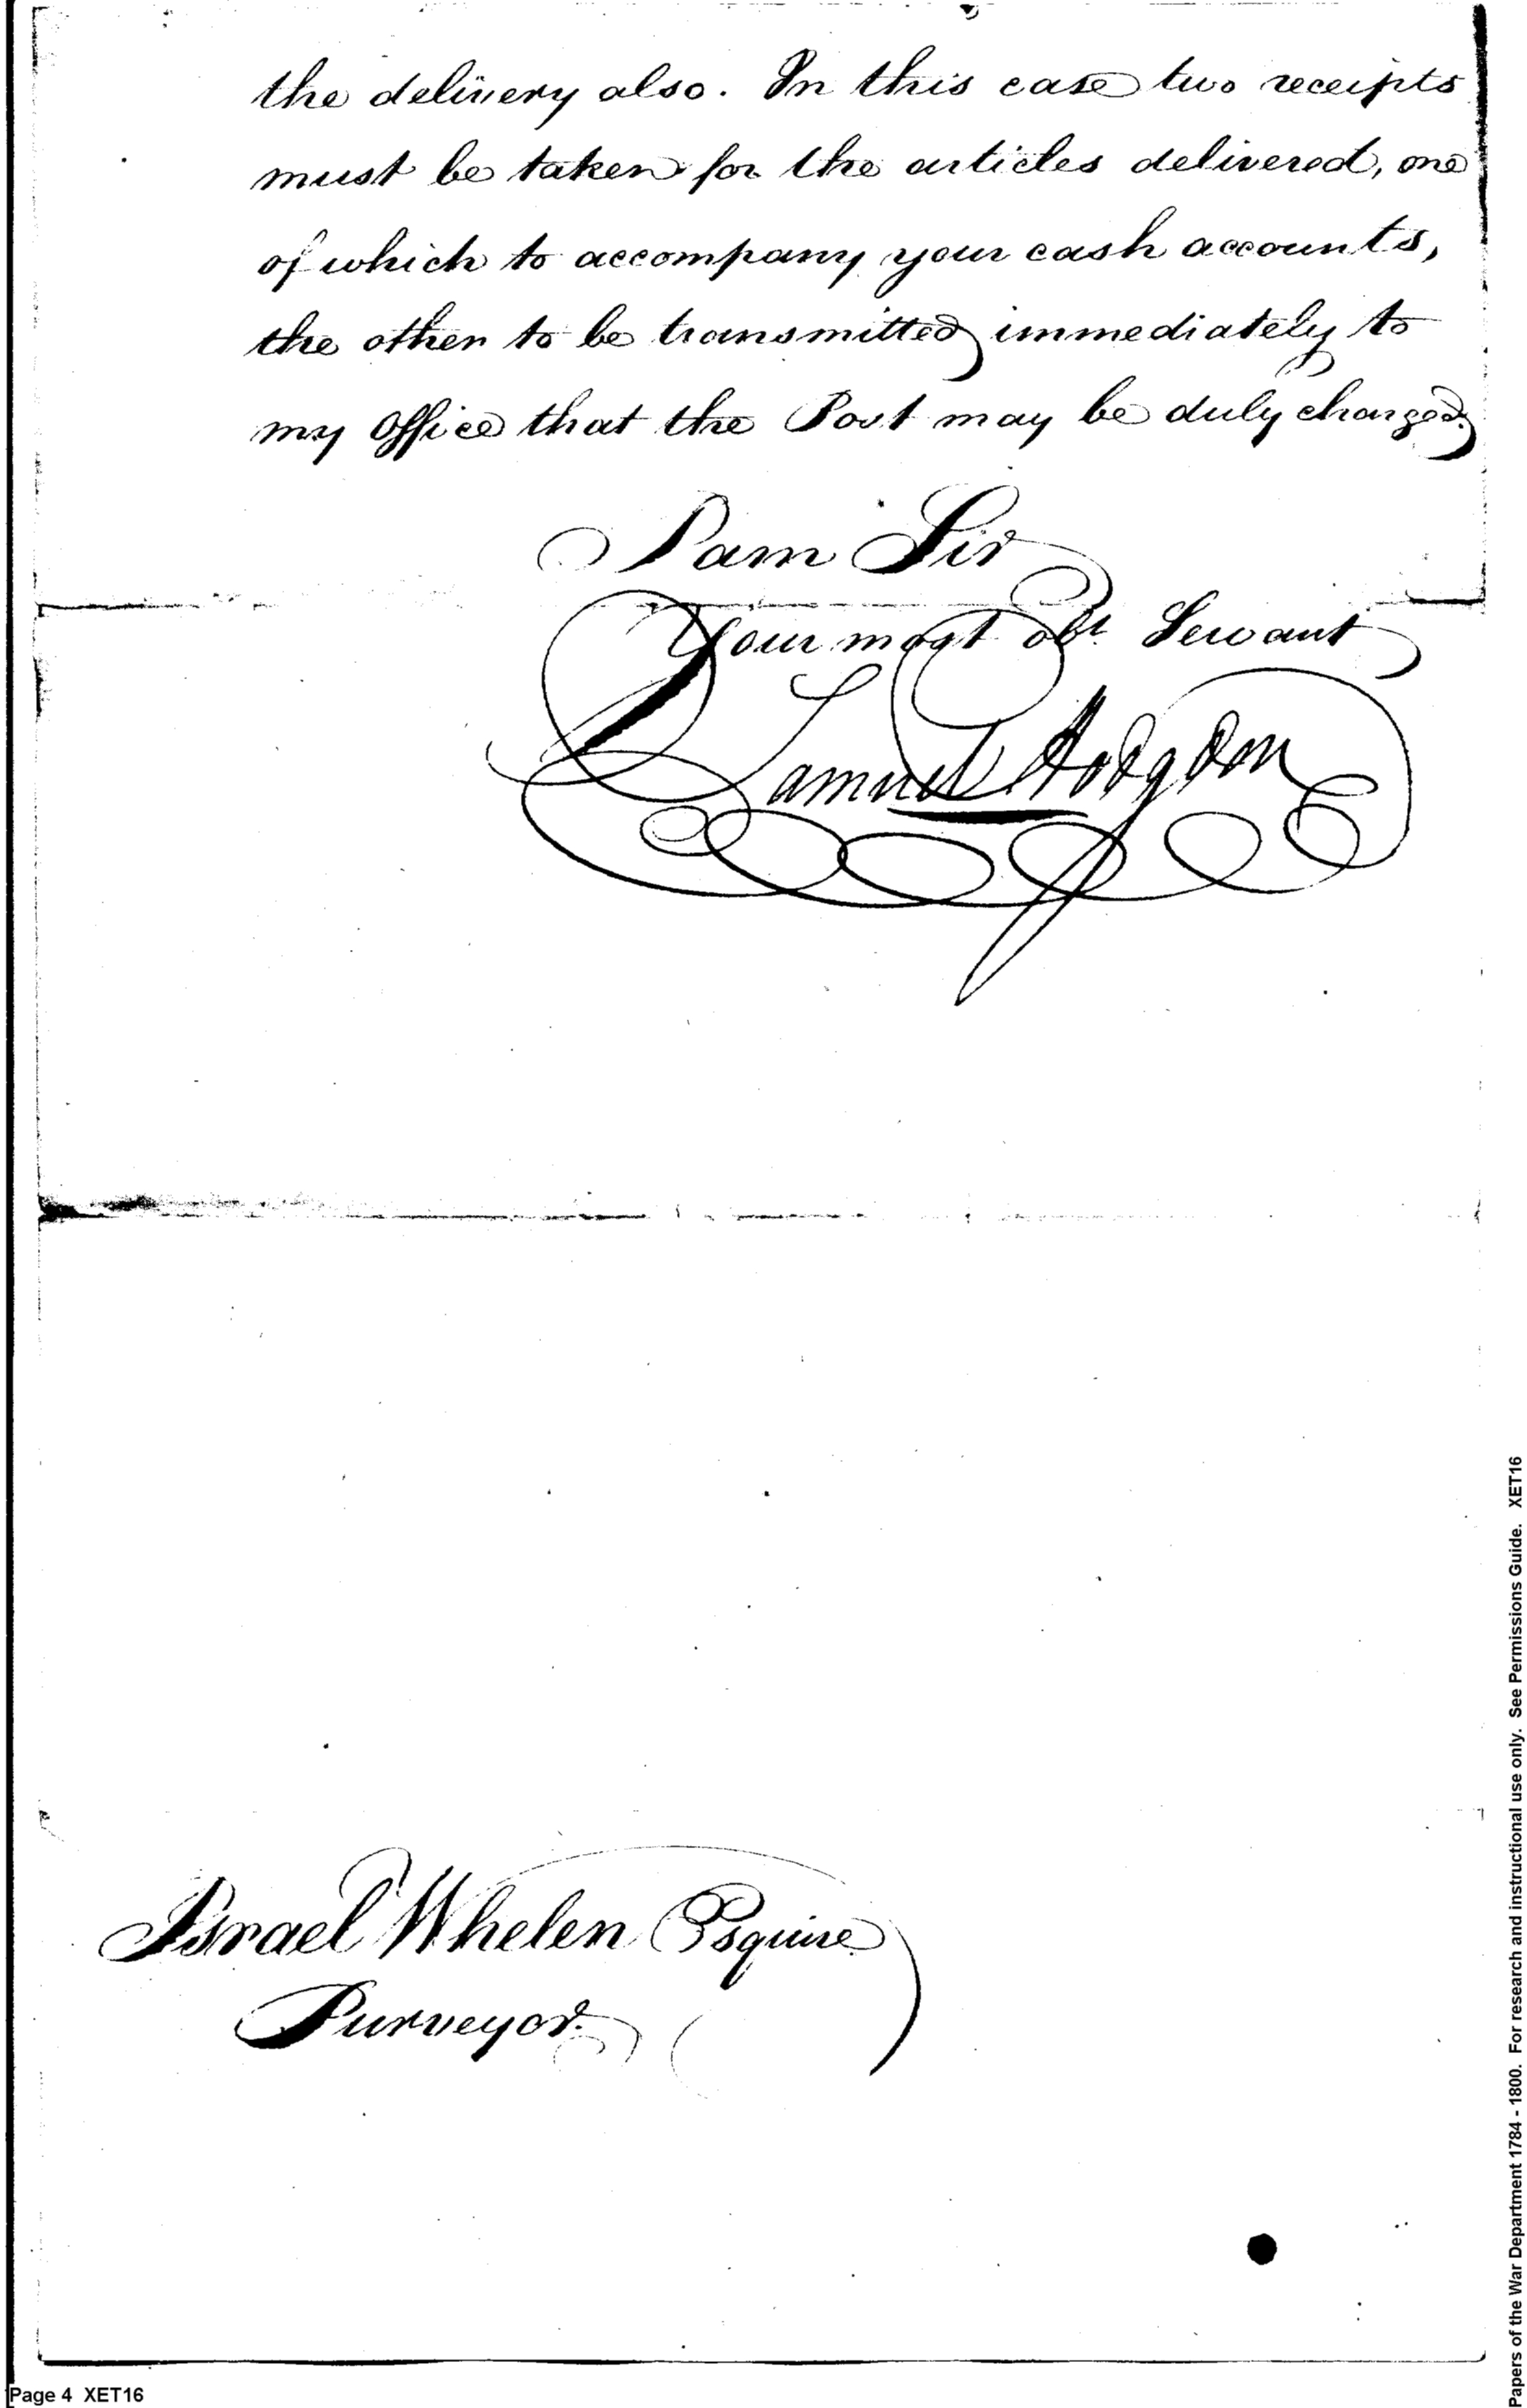 the delivery also. In this case two receipts
must be taken for the articles delivered, one
of which to accompany your cash accounts,
the other to be transmitted immediately to
my Office that the Post may be duly charged.
I am Sir
Your most obt Servant
Samuel Hodgdon
Israel Whelen Esquire
Purveyor.
Page 4 XET16
Papers of the War Department 1784 - 1800. For research and instructional use only. See Permissions Guide. XET16